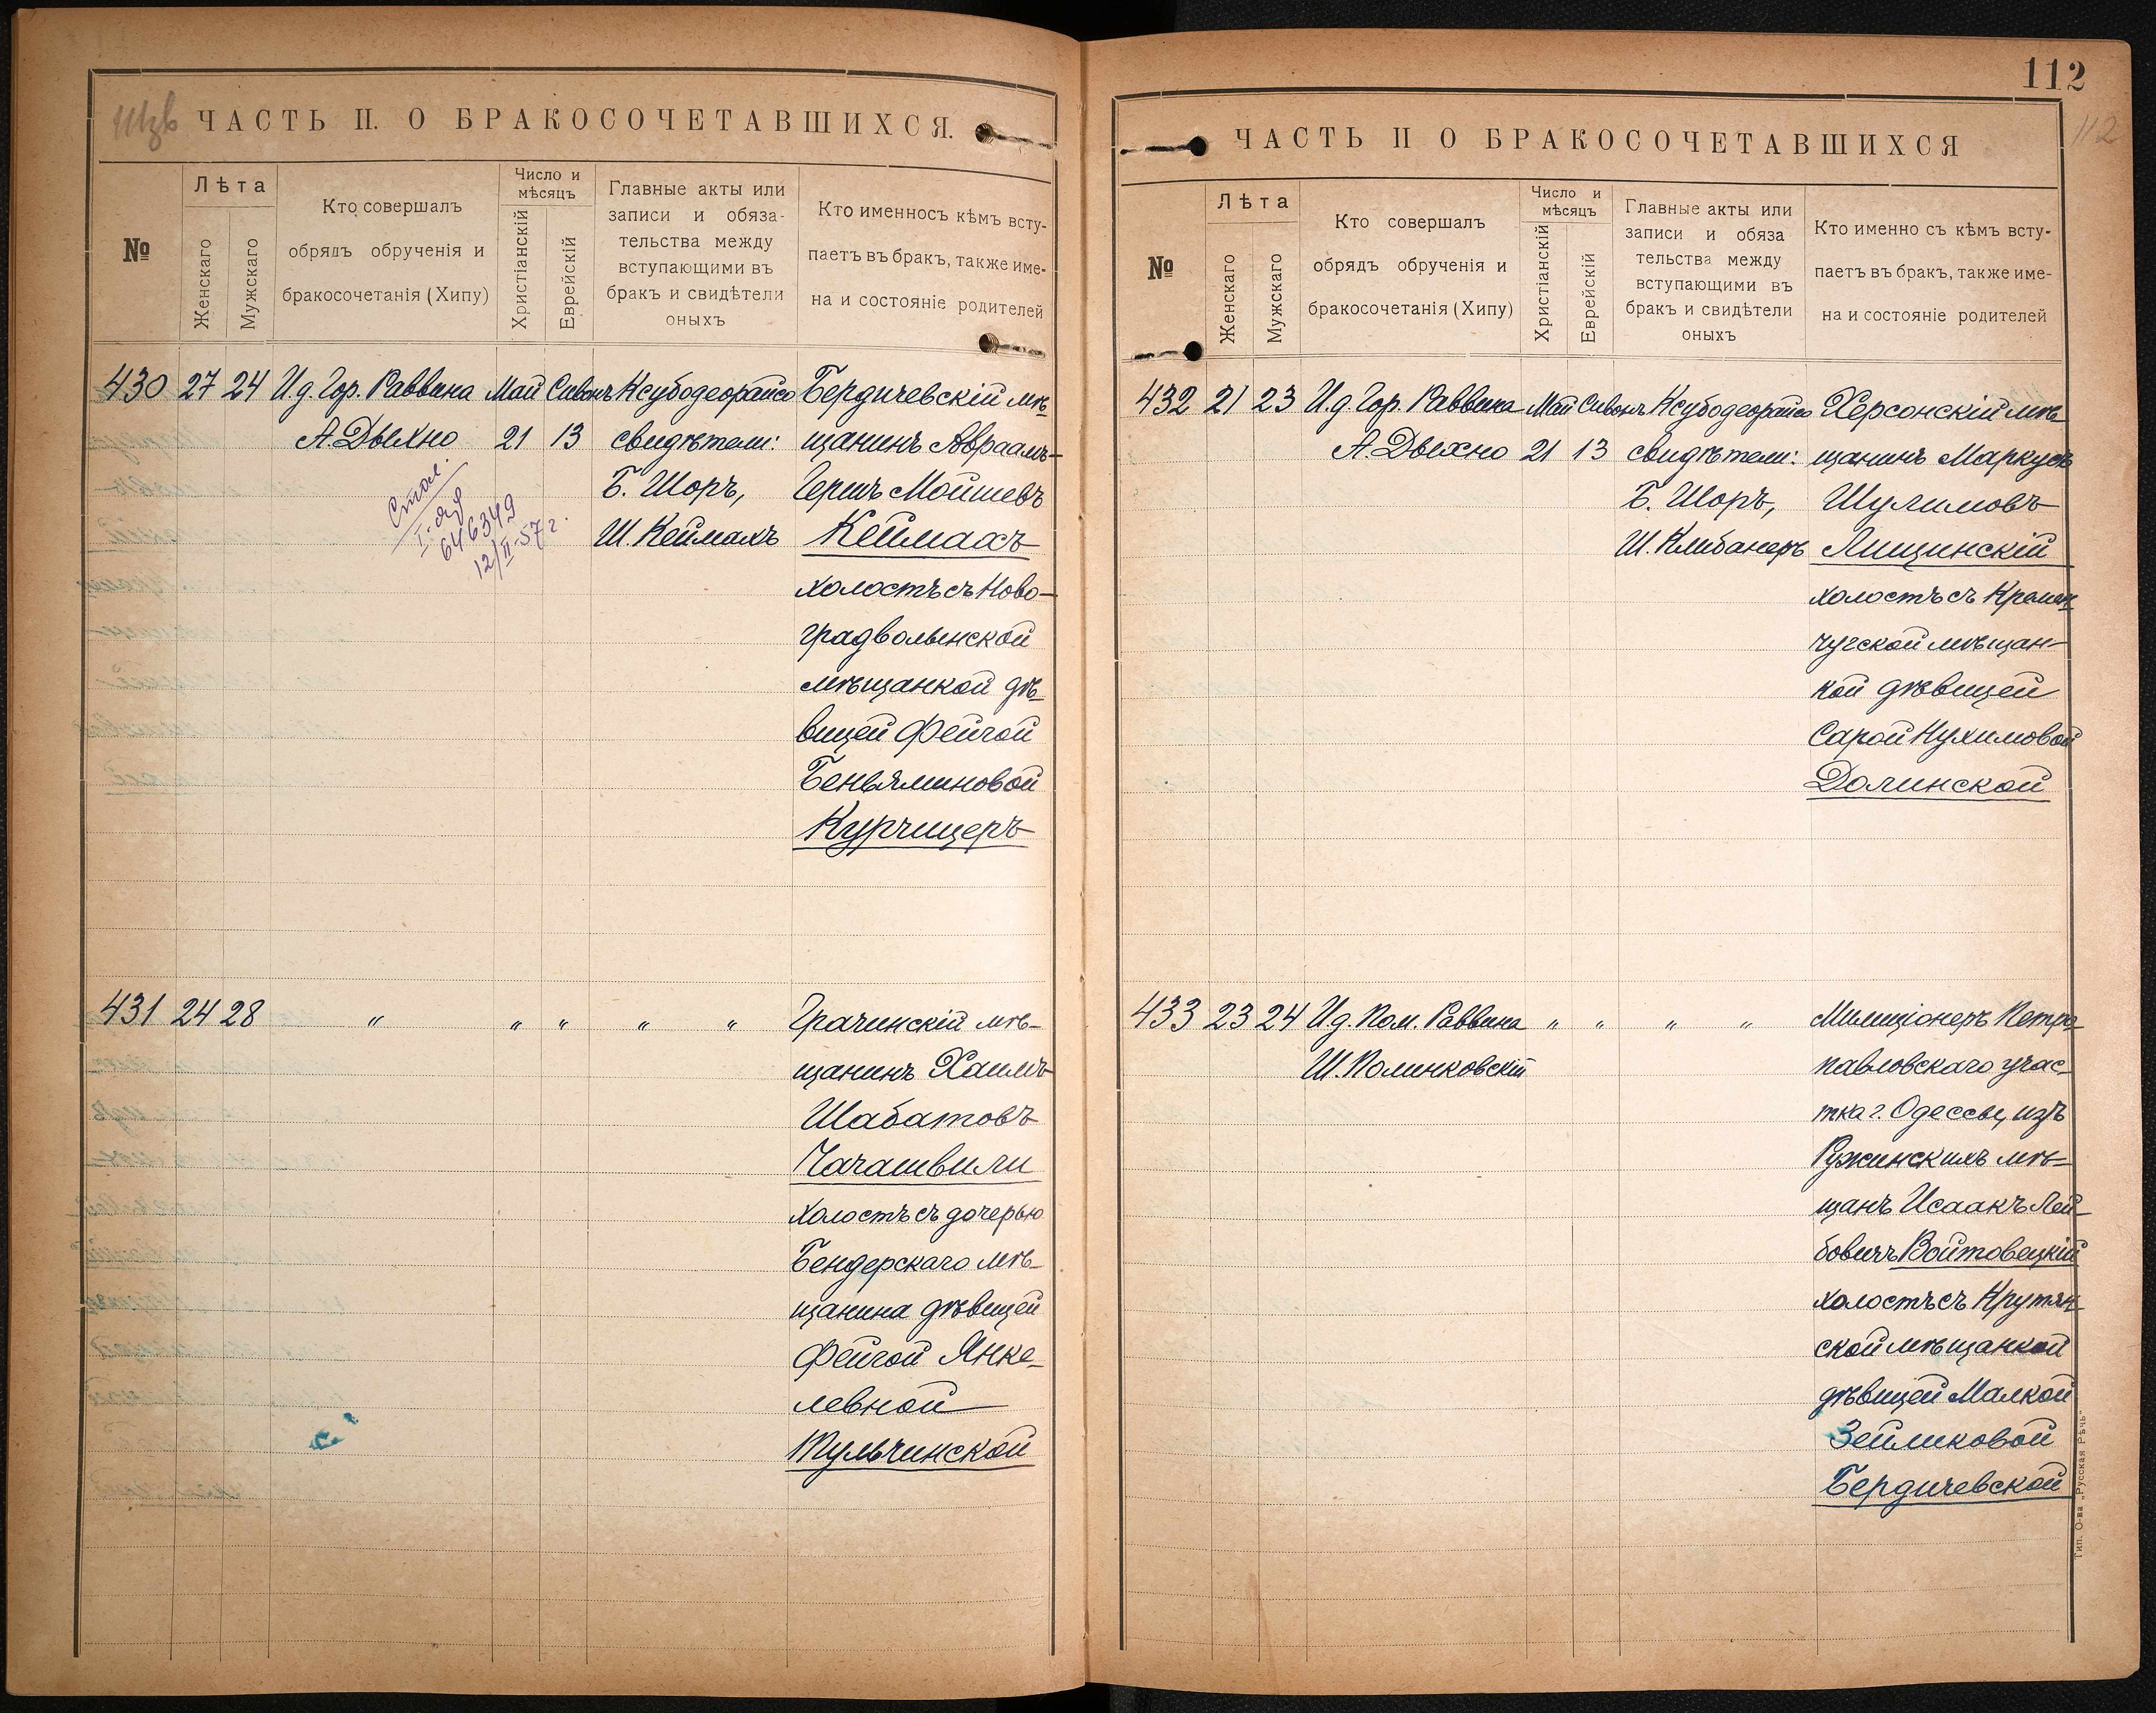 111зв
ЧАСТЬ II. О БРАКОСОЧЕТАВШИХСЯ.
№
Лѣта
Женскаго
Мужскаго
Кто совершалъ
обрядъ обрученія и
бракосочетанія (Хипу)
Число и
мѣсяцъ
Христіанскій
Еврейскій
Главные акты или
записи и обяза-
тельства между
вступающими въ
бракъ и свидѣтели
оныхъ
Кто именносъ кѣмъ всту-
паетъ въ бракъ, также име-
на и состояніе родителей
430 27 24 И.д. Гор. Раввина Май Сивонъ Ксубодеорайсо Бердичевскій мѣ-
А. Дыхно 21 13 свидѣтели: щанинъ Авраамъ-
Б. Шоръ, Гершъ Мойшевъ
Ш. Кеймахъ Кеймахъ
холостъ съ Ново-
градволынской
мѣщанкой дѣ-
вицей Фейгой
Беньяминовой
Курчицеръ
646349
12/II-57 г.
431 24 28 " " " " " Грачинскій мѣ-
щанинъ Хаимъ
Шабатовъ
Чачашвили
холостъ съ дочерью
Бендерскаго мѣ-
щанина дѣвицей
Фейгой Янке-
левной
Тульчинской
112
112
ЧАСТЬ II О БРАКОСОЧЕТАВШИХСЯ
№
Лѣта
Женскаго
Мужскаго
Кто совершалъ
обрядъ обрученія и
бракосочетанія (Хипу)
Число и
мѣсяцъ
Христіанскій
Еврейскій
Главные акты или
записи и обяза
тельства между
вступающими въ
бракъ и свидѣтели
оныхъ
Кто именно съ кѣмъ всту-
паетъ въ бракъ, также име-
на и состояніе родителей
432 21 23 И.д. Гор. Раввина Май Сивонъ Ксубодеорайсо Херсонскій мѣ-
А. Дыхно 21 13 свидѣтели: щанинъ Маркусъ
Б. Шоръ, Шулимовъ
Ш. Клибанеръ Лищинскій
холостъ съ Кремен-
чугской мѣщан-
кой дѣвицей
Сарой Нухимовой
Долинской
433 23 24 И.д. Пом. Раввина " " " " Милиціонеръ Петро-
Ш. Полинковскій павловскаго учас-
тка г. Одессы, изъ
Ружинскихъ мѣ-
щанъ Исаакъ Лей-
бовичъ Войтовецкій
холостъ съ Крутян-
ской мѣщанкой
дѣвицей Малкой
Зейликовой
Бердичевской
Тип. О-ва „Русская Рѣчь"